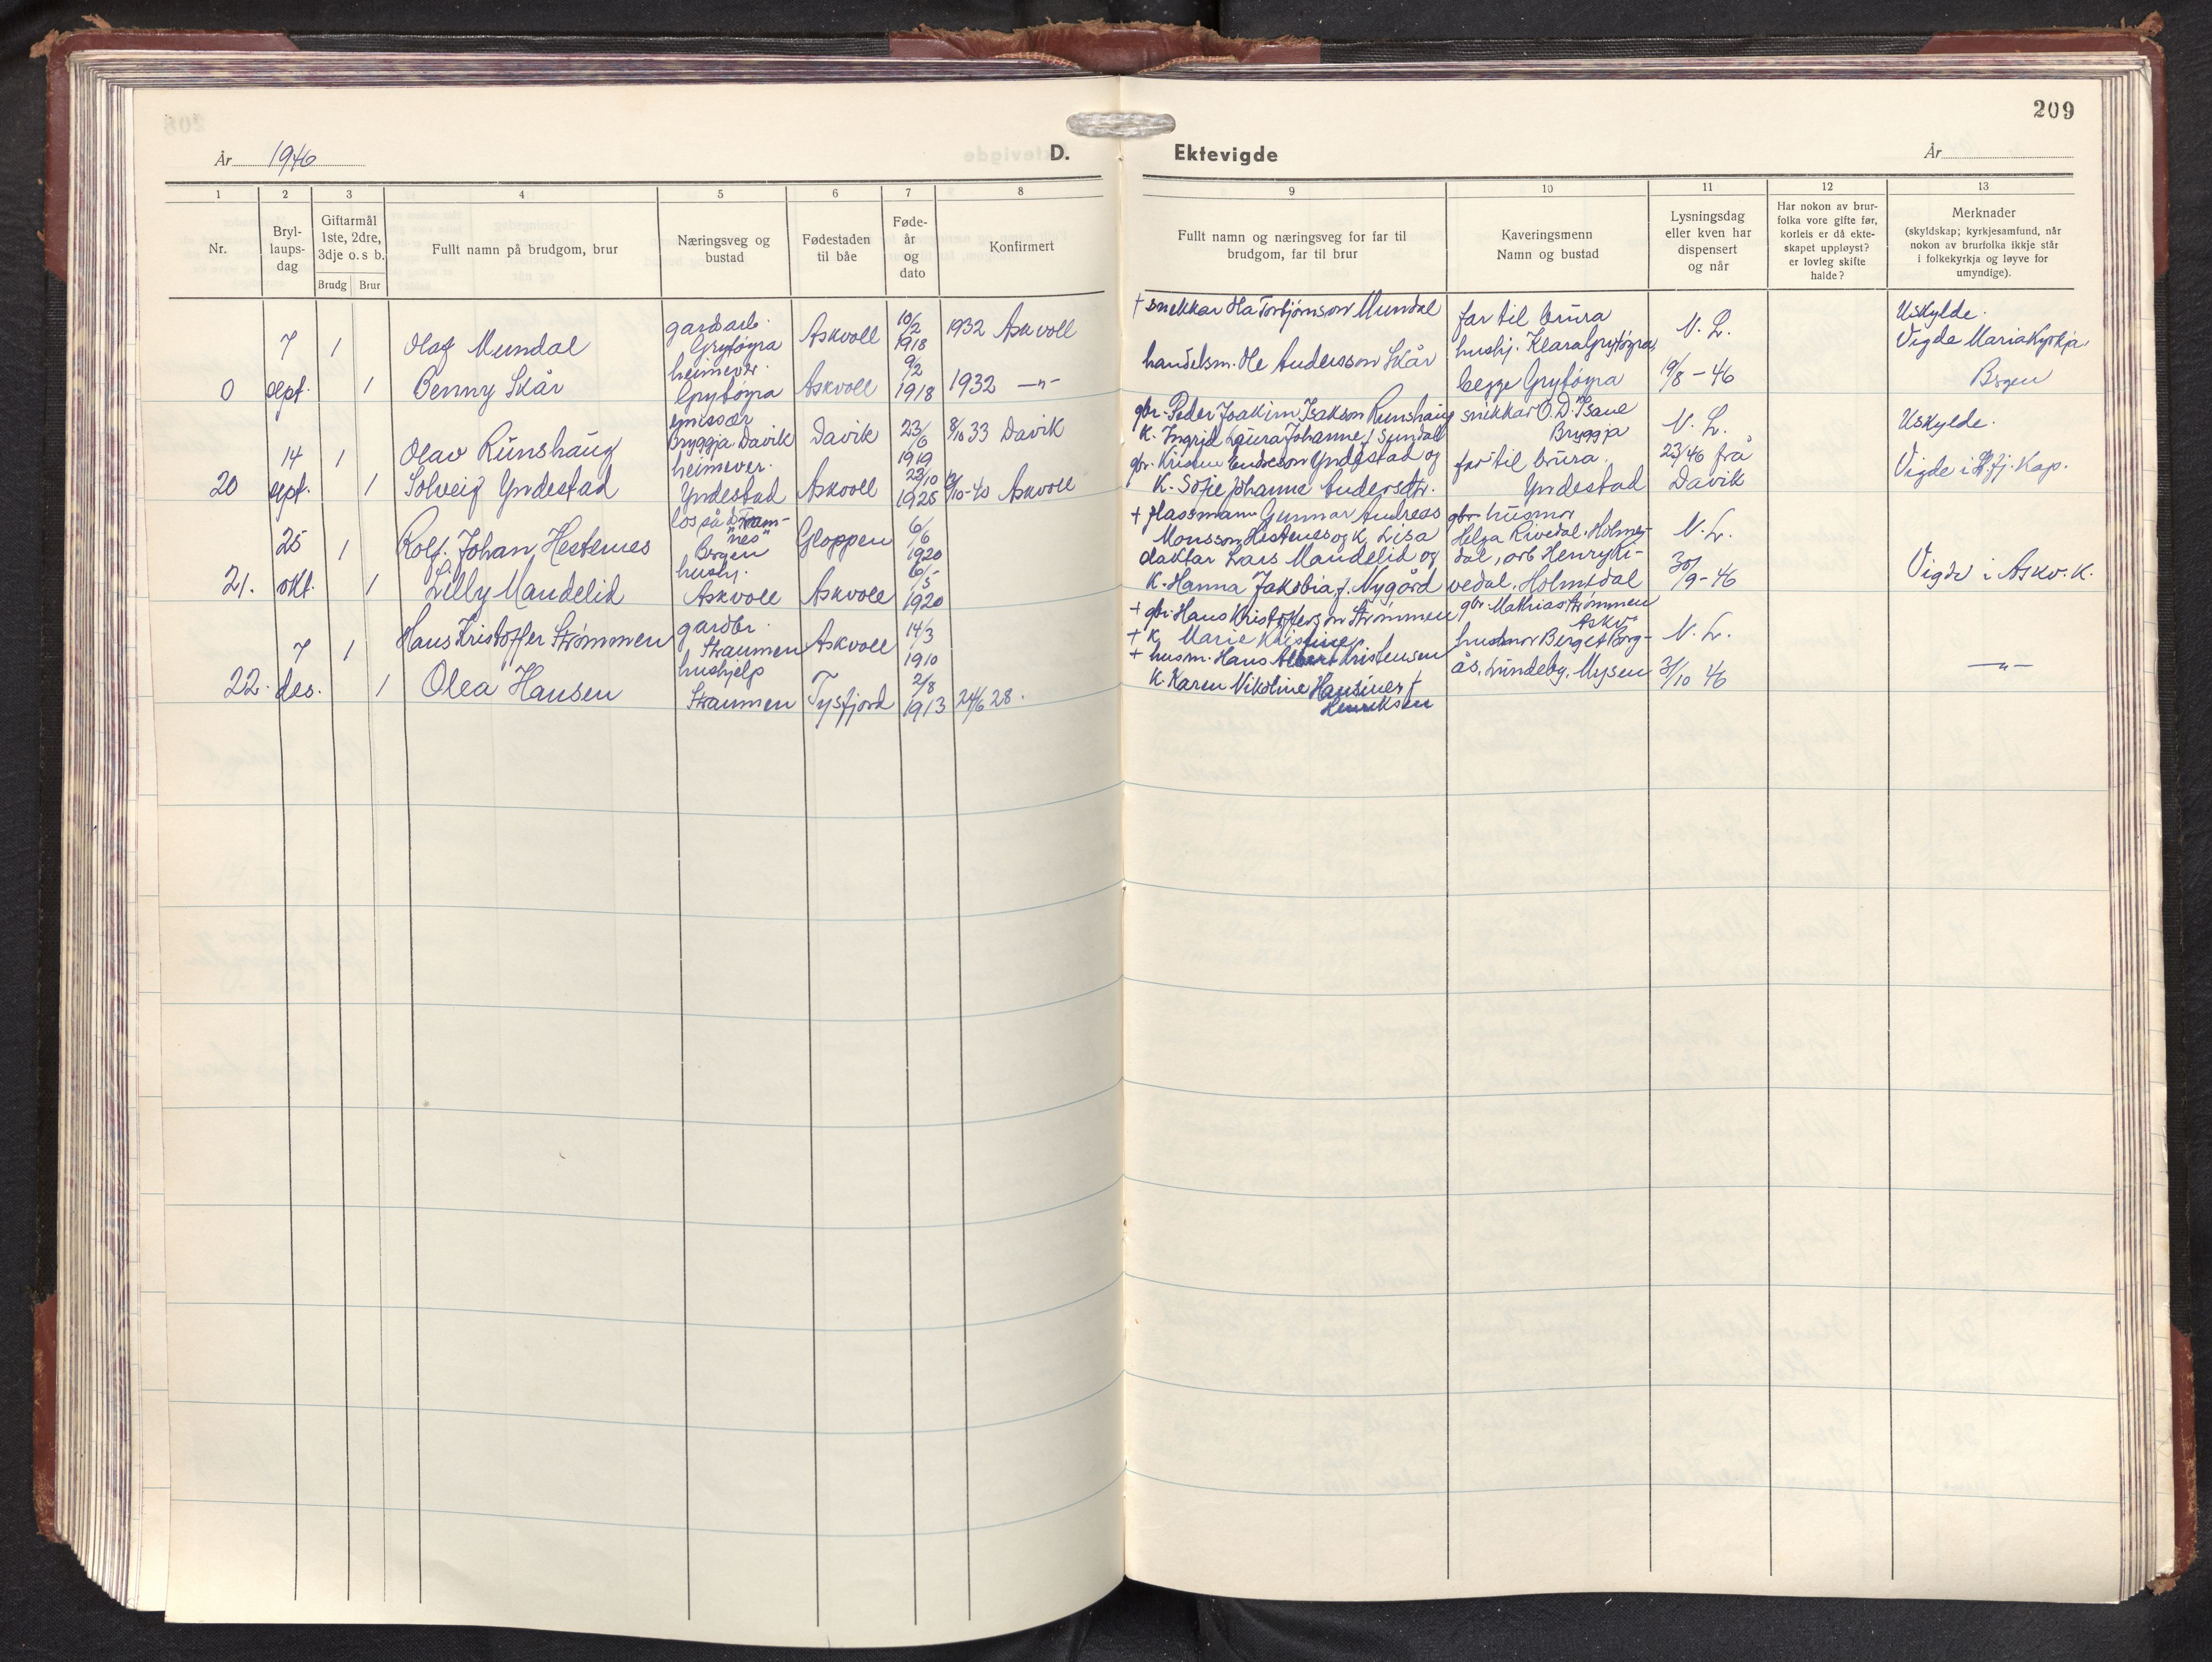 209
År 1946 D. Ektevigde År
1 2 3 4 5 6 7 8 9 10 11 12 13
Nr.
Bryl-
laups-
dag
Giftarmål
1ste, 2dre,
3dje o. s b.
Brudg Brur
Fullt namn på brudgom, brur
Næringsveg og
bustad
Fødestaden
til båe
Føde-
år
og
dato
Konfirmert
Fullt namn og næringsveg for far til
brudgom, far til brur
Kaveringsmenn
Namn og bustad
Lysningsdag
eller kven har
dispensert
og når
Har nokon av brur-
folka vore gifte før,
korleis er då ekte-
skapet uppløyst?
er lovleg skifte
halde?
Merknader
(skyldskap; kyrkjesamfund, når
nokon av brurfolka ikkje står
i folkekyrkja og løyve for
umyndige).
7 1 Olaf Mundal
gardsarb.
Grytøyra
Askvoll
10/2
1918
1932 Askvoll
+ snekkar Ola Torbjørnson Mundal
far til brura
hushj. Klara Grytøyra,
N. L.
Uskylde.
Vigde Mariakyrkja
0 sept. 1 Benny Skår
heimever.
Grytøyra
Askvoll
9/2
1918
1932 —"—
handelsm. Ole Andersson Skår
begge Grytøyra
19/8 - 46
Brgen
14 1 Olav Runshaug
emissær
Bryggja. Davik
Davik
23/6
1919
8/10 33 Davik
gbr. Peder Joakim Isakson Runshaug
K. Ingrid Laura Johanne f Sundal
snikkar O. D. Isane
Bryggja
N. L.
Uskylde.
20 sept. 1 Solveig Yndestad
heimever.
Yndestad
Askvoll
23/10
1925
/10-40 Askvoll
gbr. Kristen Endreson Yndestad og
K. Sofie Johanne Andersdtr.
far til brura.
Yndestad
23/ 46 frå
Davik
Vigde i kap.
25 1 Rolf. Johan Hestenes
los på D
nes"
Bergen
Gloppen
6/6
1920
+ Gunnar Andreas
Monsson Hestenes og K, Lisa
gbr husmor
Helga Rivedal, Holme-
dal, arb Henry Ri-
vedal, Holmedal
N. L.
21. okt. 1 Lilly Mandelid
hushj.
Askvoll
Askvoll
6/5
1920
Lars Mandelid og
K. Hanna Jakobia f. Nygård
30/9 - 46
Vigde i Askv. K.
7 1 Hans Kristoffer Strømmen
gardbr.
Straumen
Askvoll
14/3
1910
+ gbr. Hans Kristofferson Strømmen
+ K. Marie Kristine
gbr. Mathias Strømmen
Askv-
husmor Berget Borg-
ås. Lundeby. Mysen
N. L.
22. des. 1 Olea Hansen
hushjelp
Straumen
Tysfjord
2/8
1913
24/6 28.
+ husm. Hans Albert Kristensen
K. Karen Nikoline Hansine f
Henriksen
31/10 46
—"—